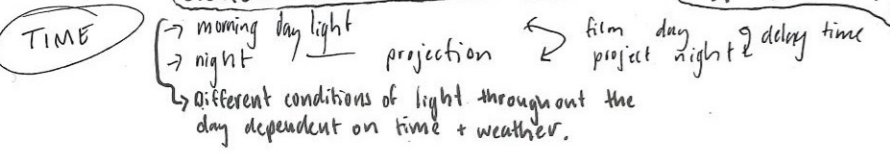 TIME
→ morning day light
→ night / projection
film day
project night } delay time
↳ Different conditions of light throughout the
day dependent on time + weather.